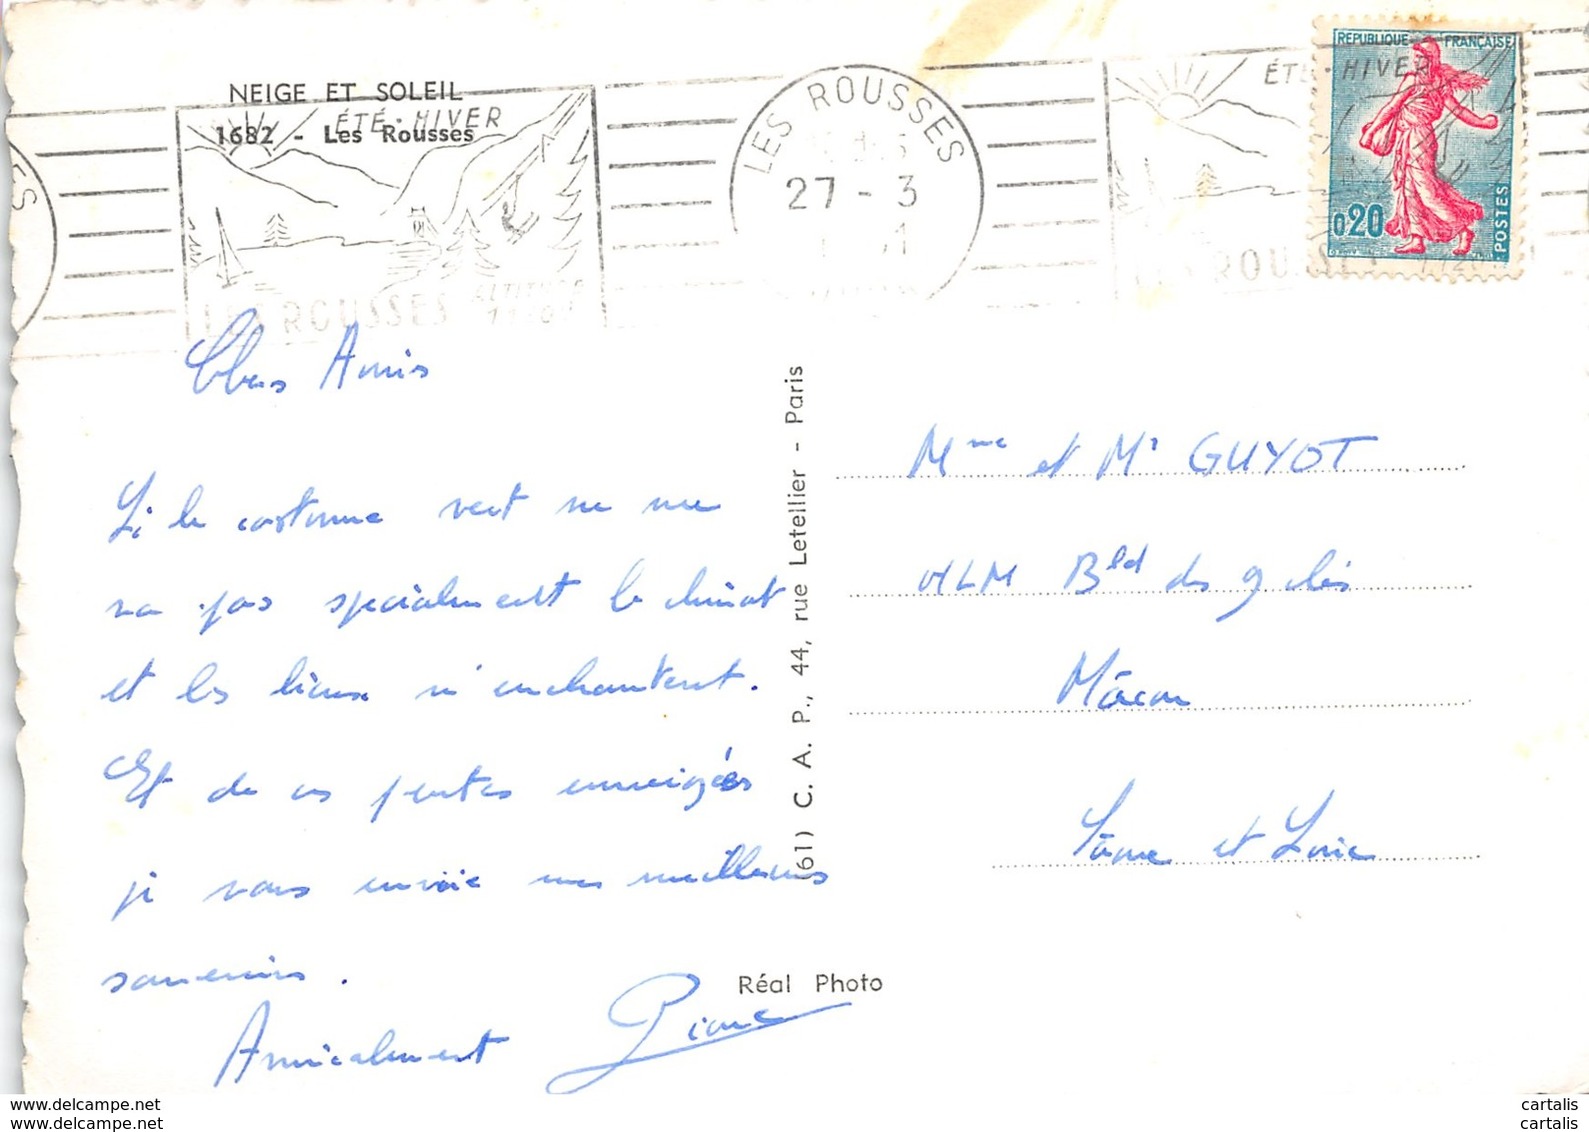 NEIGE ET SOLEIL
1682 - Les Rousses
ÉTÉ - HIVER
LES ROUSSES
ALTITUDE
LES ROUSSES
27 - 3
ÉTÉ - HIVER
REPUBLIQUE FRANÇAISE
0,20
POSTES
Chers Amis
Si le costume vert ne me
va pas spécialement le climat
et les lieux m'enchantent.
Et de ces pentes enneigées
je vous envoie mes meilleurs
souvenirs.
Amicalement Pierre
(61) C. A. P., 44, rue Letellier - Paris
Réal Photo
Mme et Mr GUYOT
HLM Bld des 9 clés
Mâcon
Saône et Loire
www.delcampe.net
www.delcampe.net
cartalis
cartalis